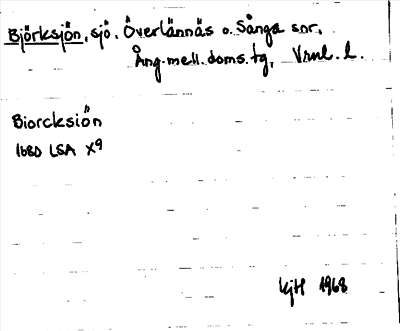 Björksjön, sjö. Överlännäs o. Sånga snr,
Ång. mell. doms. tg, Vrnl. l.
Biorcksiön
1680 LSA X9
KjH 1968